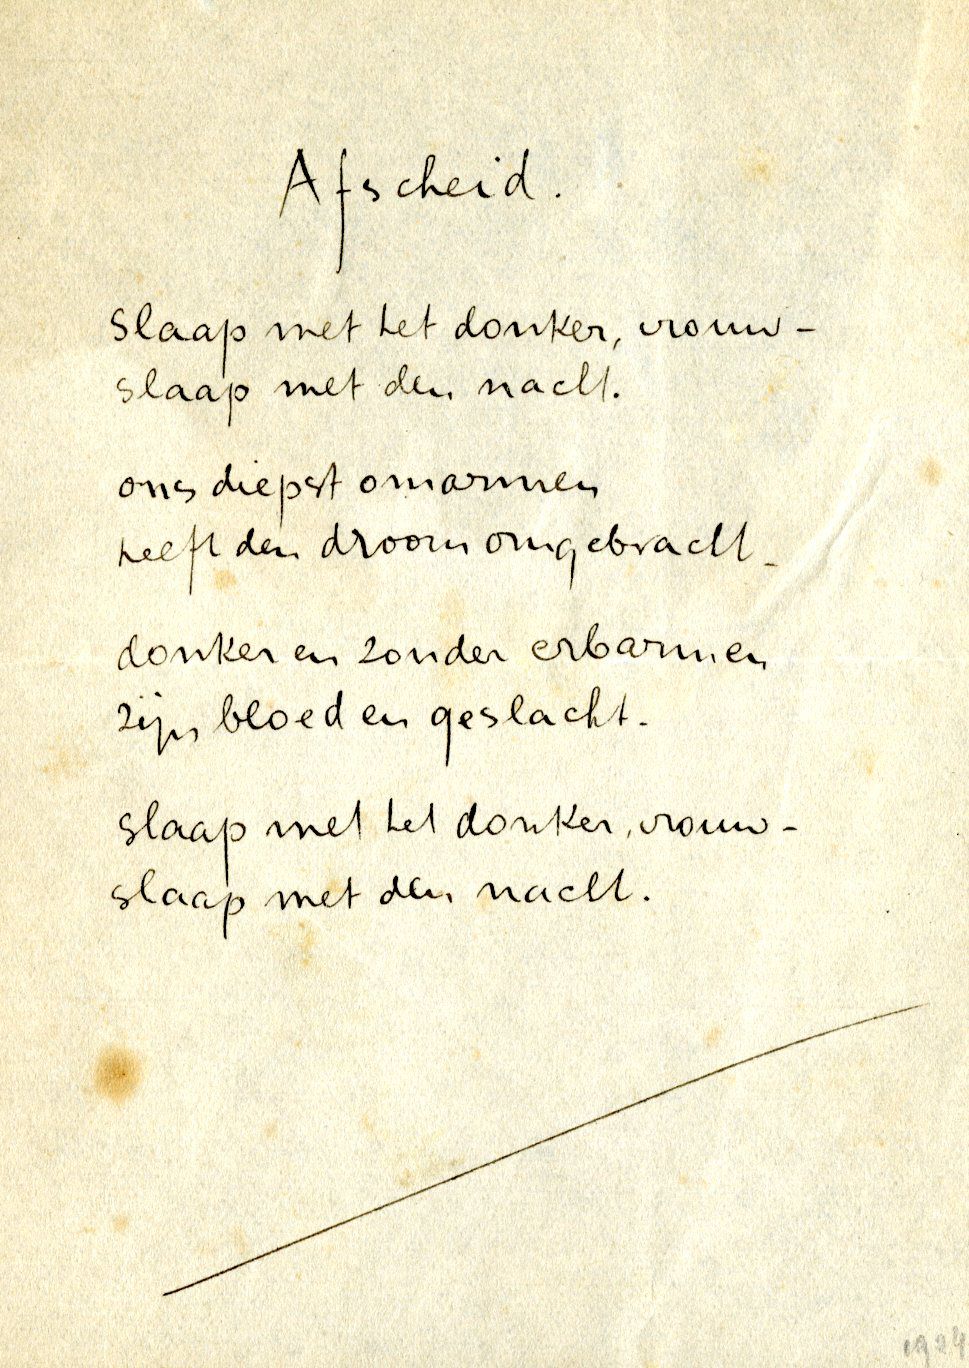 Afscheid.
slaap met het donker, vrouw –
slaap met den nacht.
ons diepst omarmen
heeft den droom omgebracht –
donker en zonder erbarmen
zijn bloed en geslacht –
slaap met het donker, vrouw –
slaap met den nacht.
1924